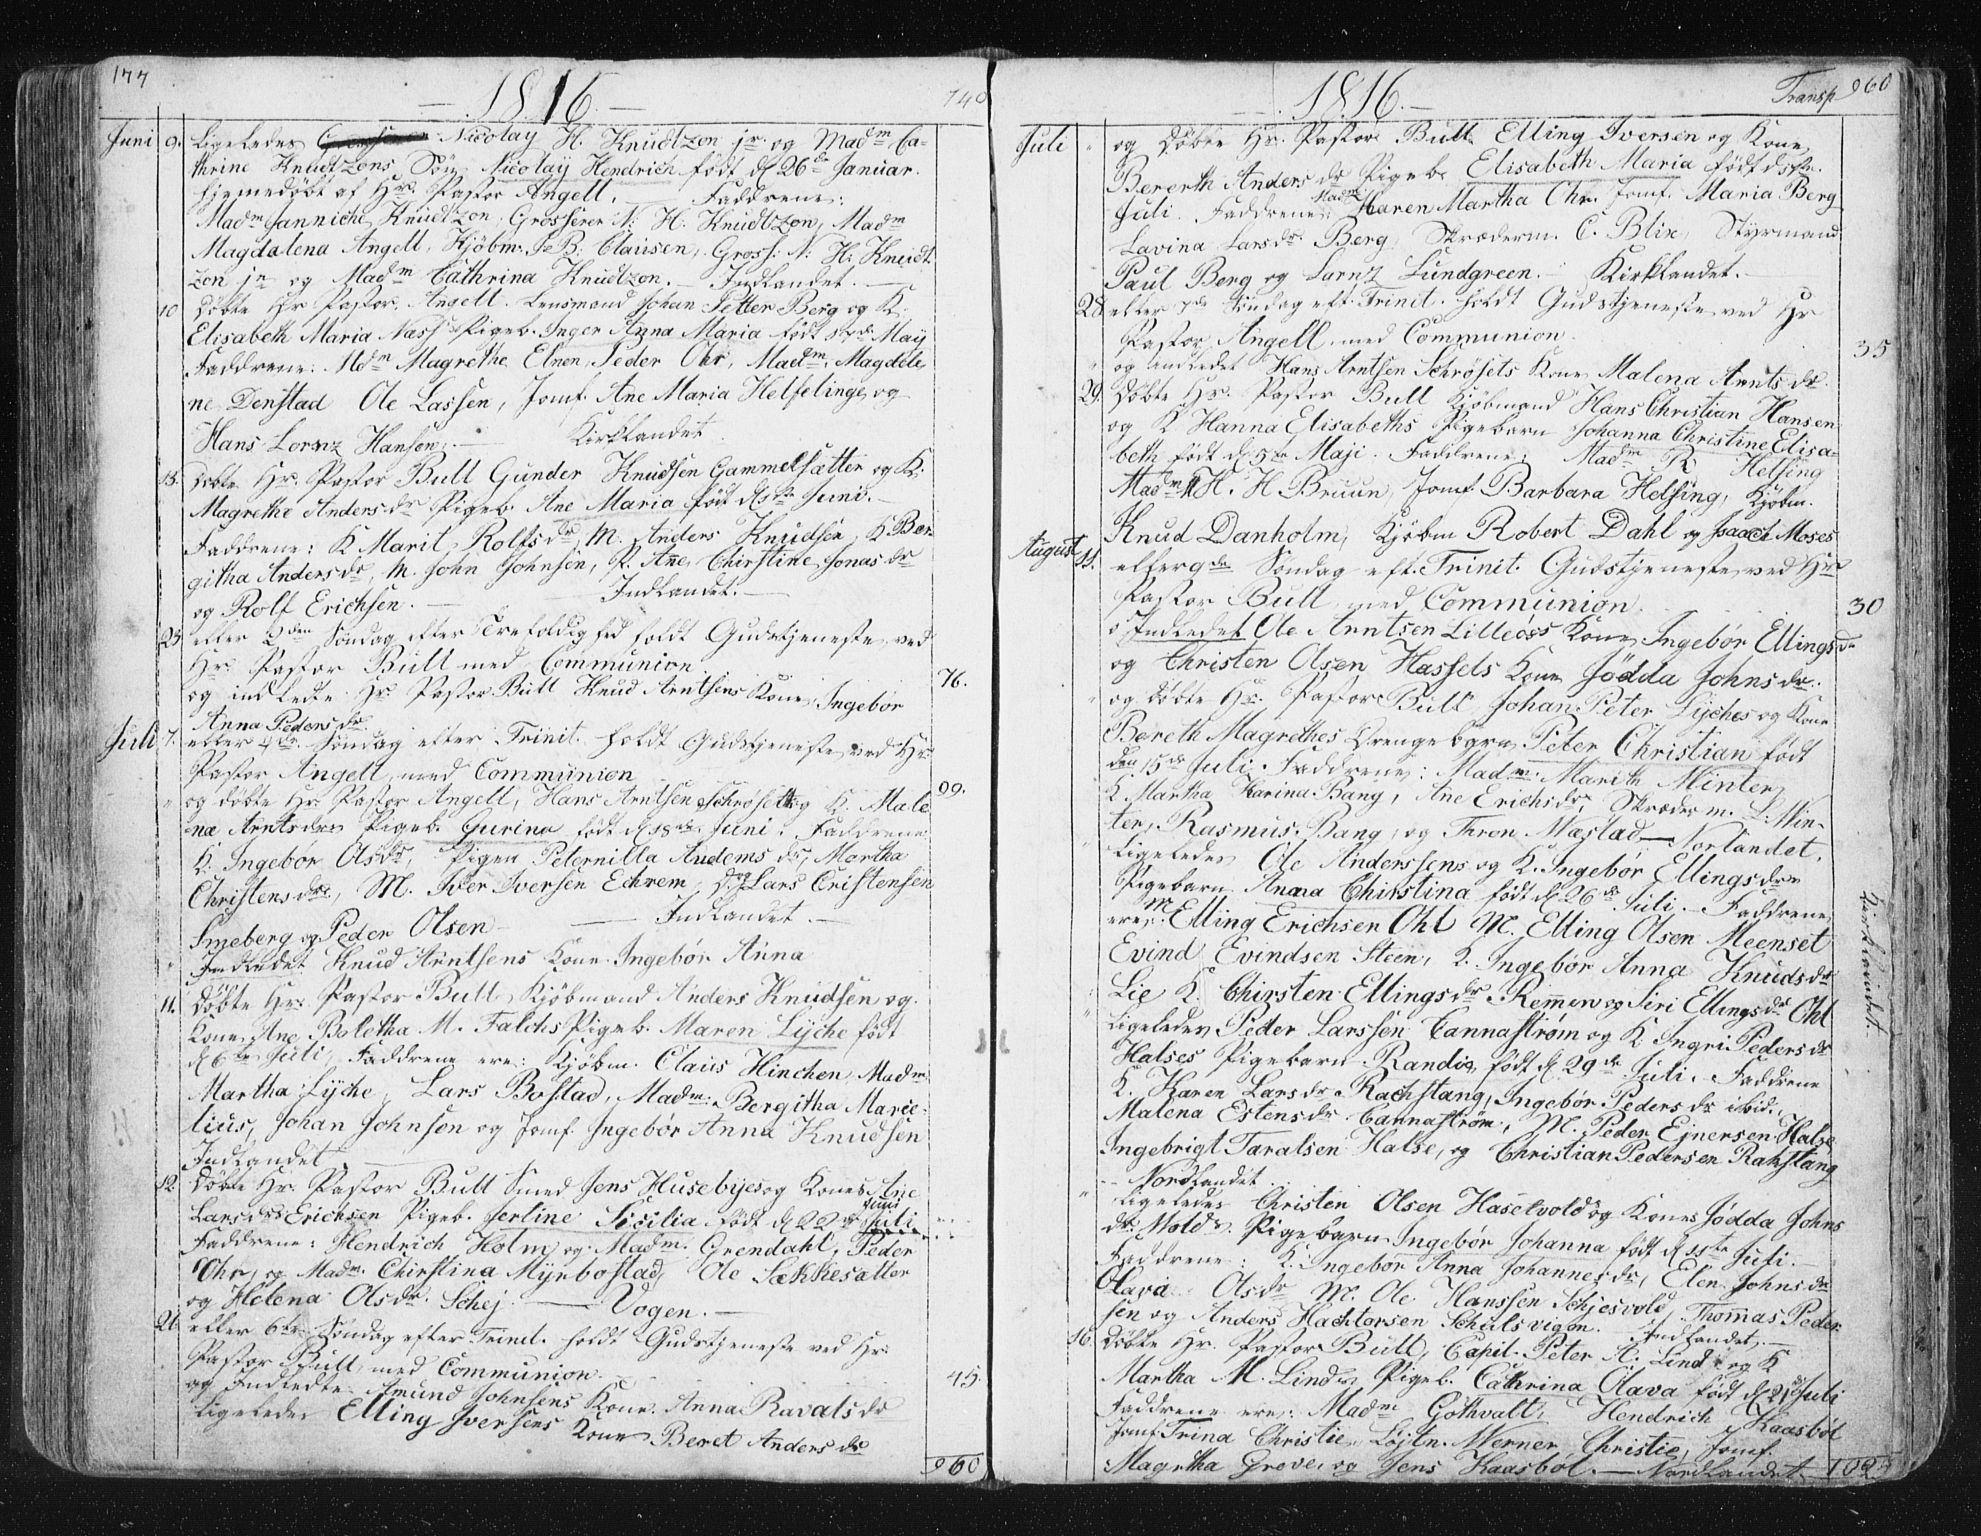 177
1816.
740
Juni 9. Ligeledes Nicolay H. Knudtzon jr. og Madm Ca-
thrine Knudtzons Søn Nicolaÿ Hendrich født d 26de Januar.
hjemmedøbt af Hr. Pastor Angell. Faddrene:
Madm Jannicke Knudtzon, Grosserer N: H. Knudtzon, Madm
Magdalena Angell, Kjøbm. J. B. Clausen, Gross: N: H: Knudt
zon jr og Madm Cathrina Knudtzon. — Indlandet. —
10 Døbte Hr Pastor Angell. Lensmand Johan Petter Berg og K.
Elisabeth Maria Pigeb. Inger Anna Maria født May
Faddrene: Mdm Magrethe Elnen, Peder Ohr, Madm. Magdele
ne Denstad Ole Lassen, Jomf. Ane Maria Helfelinge og
Hans Lornz Hansen. — Kirklandet
Døbte Hr. Pastor Bull Gunder Knudsen Gammelsætter og K.
Magrethe Andersdr Pigeb. Ane Maria født d Juni. —
Faddrene: K Marit Rolfsdr, M. Anders Knudsen, K Ber
githa Andersdr, M. John Johnsen, P. Ane Chirstine Jonasdr
og Rolf Erichsen. — Indlandet. —
23 eller 2den Søndag efter Trefoldighed holdt Gudstjeneste ved
Hr. Pastor Bull med Communion. 76.
og indledte Hr Pastor Bull Knud Arntsens Kone Ingebør
Anna Pedersdr
Juli 7. eller 4de Søndag efter Trinit. holdt Gudstjeneste ved Hr.
Pastor Angell, med Communion 99.
og døbte Hr. Pastor Angell, Hans Arntsen Schrøset og K. Male
na Arntsdrs Pigeb. Gurina født d 18de Juni. Faddrene
K. Ingebør Olsdr, Pigen Peternilla Audemsdr, Martha
Christensdr, M. Iver Iversen Echrem, og Lars Cristensen
Smeberg og Peder Olsen — Indlandet. —
Indledet Knud Arntsens Kone Ingebør Anna
11. Døbte Hr. Pastor Bull Kjøbmand Anders Knudsen og
Kone Ane Boletha M. Falchs Pigeb. Maren Lÿche født
d 6te Juli, Faddrene ere: Kjøbm. Claus Hinchen, Madm
Martha Lÿche, Lars Bostad, Madm: Bergitha Marie-
lius, Johan Johnsen og Jomf Ingebør Anna Knudsen
Indlandet
12. Døbte Hr. Pastor Bull Smed Jens Husebÿes og Kones Ane
Larsdrs Erichsen Pigeb. Serline Sicilia født d 22de Juni
Faddrene: Hendrich Holm og Madm. Grendahl, Peder
Ohr, og Madm. Chirstina Mÿrbostad, Ole Sækkesatter
og Helena Olsdr. Schej. — Vogen. —
21 eller 6te Søndag efter Trinit. holdt Gudstjeneste ved Hr.
Pastor Bull med Communion. 45.
og Indledte Amund Johnsens Kone. Anna Ravalsdr
Ligeledes Elling Iversens Kone Beret Andersdr
960
1816.
Transp 960
Juli og døbte Hr. Pastor Bull Elling Iversen og Kone
Bererth Andersdr Pigeb. Elisabeth Maria født d
Juli. Faddrene: Madm Karen Martha Ohr. Jomf. Maria Berg
Lavina Larsdr Berg, Skrædderm. C. Blix, Styrmand
Paul Berg og Larnz Lundgreen. — Kirklandet. —
28. eller 7de Søndag eft. Trinit. holdt Gudstjeneste ved Hr
Pastor Angell med Communion 35
og indledet Hans Arntsen Schrøsets Kone Malena Arntsdr.
29. Døbte Hr. Pastor Bull Kjøbmand Hans Christian Hansen
og K Hanna Elisabeths Pigebarn Johanna Christine Elisa-
beth født d 5te Maji. Faddrene: Madm R. Helsing
Madm H. H Bruun, Jomf. Barbara Helsing, Kjøbm.
Knud Danholm, Kjøbm Robert Dahl og Isaach Moses
August 11. eller 9de Søndag eft. Trinit. Gudstjeneste ved Hr.
Pastor Bull med Communion 30
Indledet Ole Arntsen Lilleøss Kone Ingebør Ellingsdr
og Christen Olsen Hassels Kone Jødda Johnsdr.
og døbte Hr. Pastor Bull Johan Peter Lÿches og Kone
Bereth Magrethes Drengebarn Peter Christian født
den 15de Juli. Faddrene: Madm. Marith Minter,
K. Martha Karina Bang, Ane Erichsdr, Skrædderm. L. Min-
ter, Rasmus Bang, og Thron Mæstad — Norlandet.
Ligeledes Ole Anderssens og K. Ingebør Ellingsdrs
Pigebarn Anna Chirstina født d 26de Juli. — Faddrene
ere: M. Elling Erichsen Ohl M. Elling Olsen Meenset
Evind Evindsen Steen, K. Ingebør Anna Knudsdr
Lie K. Chirsten Ellingsdr Remen og Siri Ellingsdr Ohl
Kirklandet.
Ligeledes Peder Larssen Cannastrøm og K Ingri Pedersdr
Halses Pigebarn Randia født d 29de Juli. Faddrene
K. Karen Larsdr Rachstang, Ingebør Pedersdr ibid.,
Malena Estensdr Cannastrøm, M. Peder Ejnersen Halse
Ingebrigt Taralsen Halse, og Christian Pedersen Rakstang
— Nordlandet.
Ligeledes Christen Olsen Haselvold og Kones Jødda Johns
dr: Molds Pigebarn Ingebør Johanna født d 11te Juli. —
Faddrene: K. Ingebør Anna Johannesdr, Elen Johnsdr
Olava Olsdr M. Ole Hanssen Schjesvold, Thommas Peder
sen og Anders Hachtorsen Schulsvigen. Indlandet, —
16. Døbte Hr. Pastor Bull, Capit. Peter A. Lind og K
Martha M. Linds Pigeb. Cathrina Olava født d 21de Juli
Faddrene ere: Madm Gothvalt, Hendrich Kaasbøl
Jomf Trina Christie, Løjtn. Werner Christie, Jomf.
Magretha Greve, og Jens Kaasbøl. — Nordlandet 1025